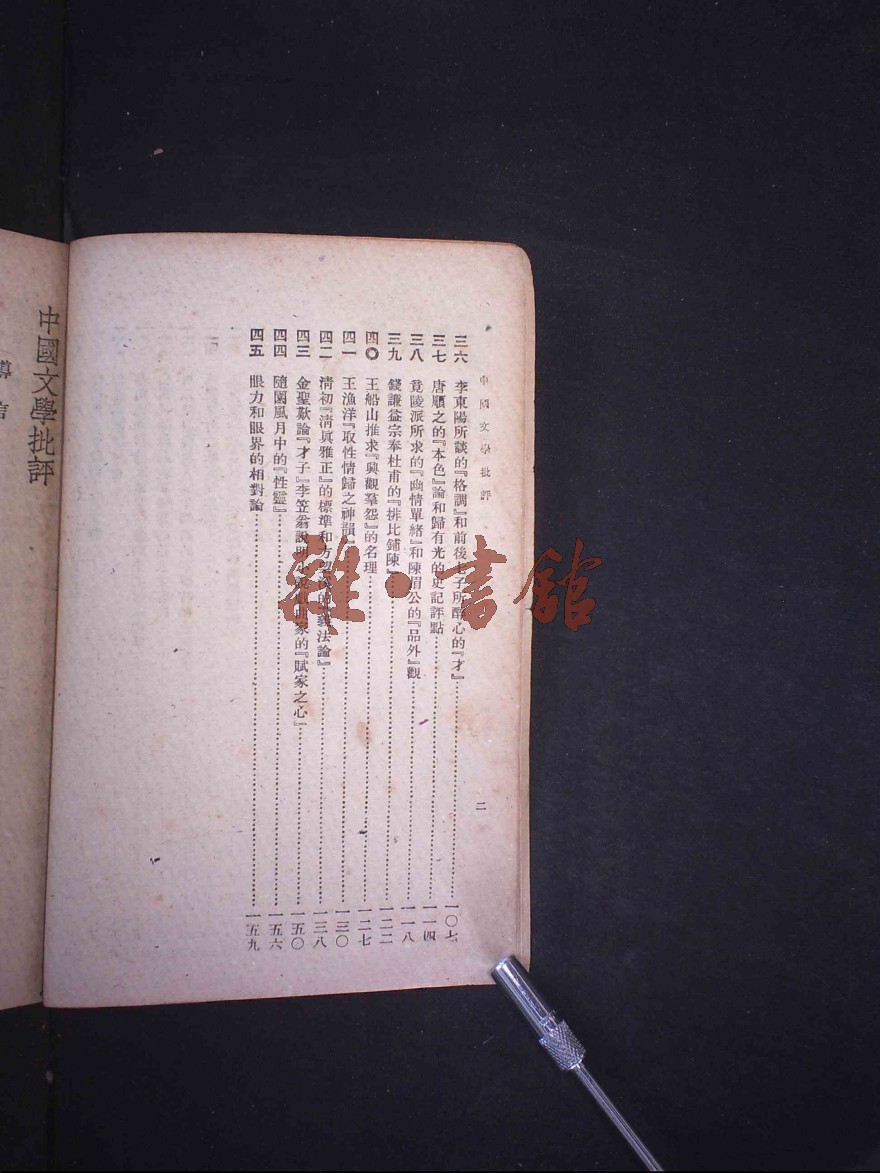 中國文學批評
二
三六 李東陽所談的『格調』和前後七子所醉心的『才』 一〇七
三七 唐順之的『本色』論和歸有光的史記評點 一一四
三八 竟陵派所求的『幽情單緒』和陳眉公的『品外』觀 一一八
三九 錢謙益宗奉杜甫的『排比鋪陳』 一二二
四〇 王船山推求『興觀羣怨』的名理 一二七
四一 王漁洋『取性情歸之神韻』 一三〇
四二 清初『清眞雅正』的標準和方望溪的『義法論』 一三八
四三 金聖歎論『才子』李笠翁說明小說戲曲家的『賦家之心』 一五〇
四四 隨園風月中的『性靈』 一五六
四五 眼力和眼界的相對論 一五九
中國文學批評
導言
雜·書館